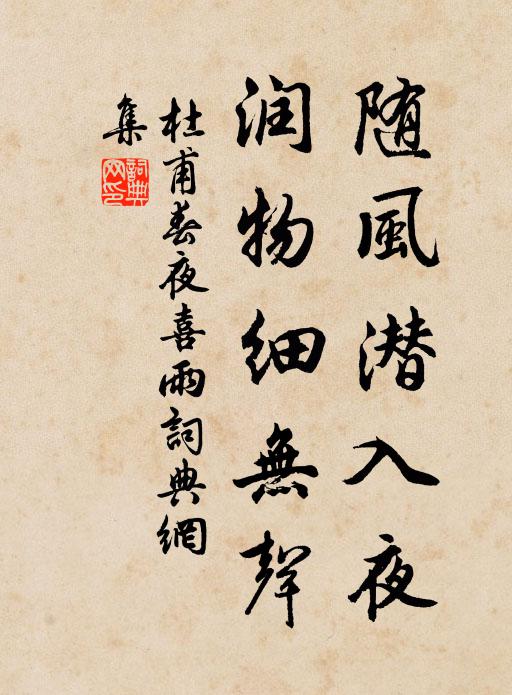 随風潜入夜
润物细無聲
杜甫春夜喜雨詞典網
集
詞典
网印